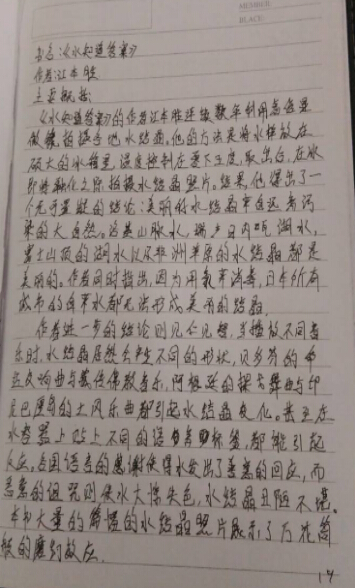 MEMBER
PLACE
书名:《水知道答案》
作者:江本胜
主要概括:
《水知道答案》的作者江本胜连续数年利用高倍显
微镜拍摄各地水结晶。他的方法是将水样放在
硕大的冰箱里,温度控制在零下五度,取出后,在冰
即将融化之际,拍摄水结晶照片。结果,他得出了一
个无可置疑的结论:美丽的水结晶来自远离污
染的大自然。法美山脉水,瑞士日内瓦湖水,
富士山顶的湖水以及非洲草原的水结晶都是
美丽的。作者同时指出,因为用氯来消毒,日本所有
城市的自来水都无法形成美丽的结晶。
作者进一步的结论则见仁见智,当播放不同音
乐时,水结晶居然会产生不同的形状,贝多芬的命
运交响曲与藏传佛教音乐,阿根廷的探戈舞曲与印
尼巴厘岛的土风乐曲都引起水结晶变化。甚至在
水容器上贴上不同的语言标签,都能引起
反应。各国语言的感谢使得水发出了善意的回应,而
恶意的诅咒则使水大惊失色,水结晶丑陋不堪。
本书大量的解惯的水结晶照片展示了万花筒
般的魔幻效应。
14